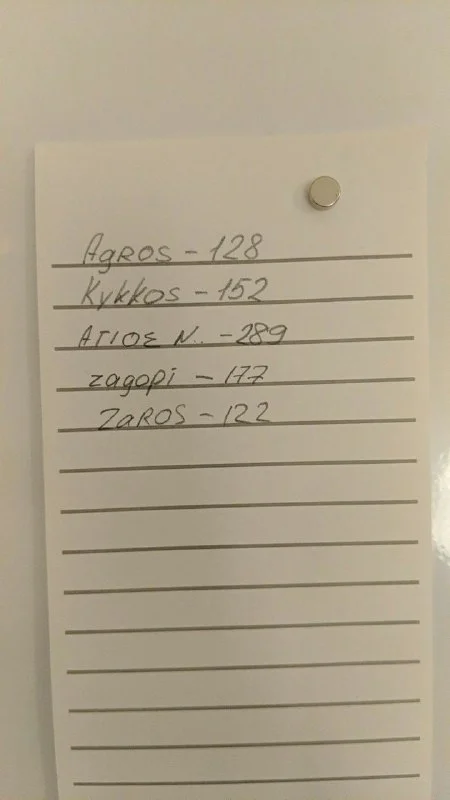 Agros - 128
Kykkos - 152
ΑΓΙΟΣ Ν.. - 289
zagopi - 177
ZaROS - 122